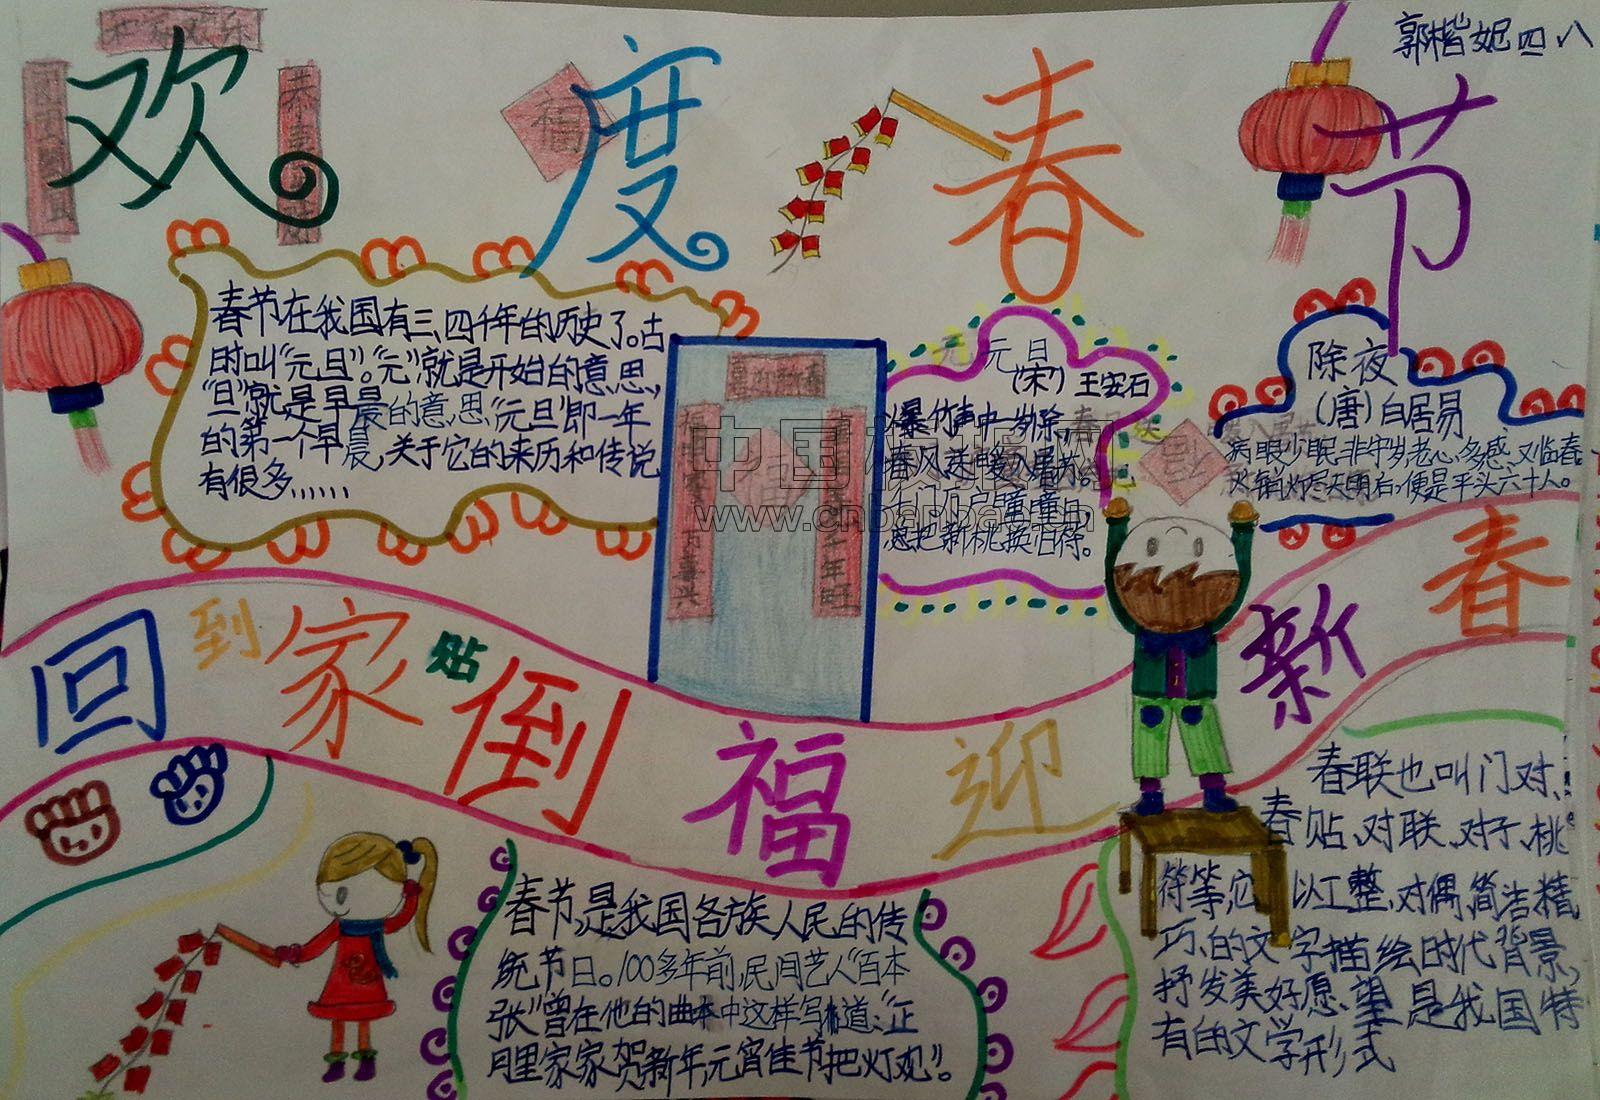 欢度春节
郭楷妮四八
福
春节在我国有三四千年的历史了。古
时叫“元旦”。“元”就是开始的意思,
“旦”就是早晨的意思“元旦”即一年
的第一个早晨,关于它的来历和传说
有很多……
元旦
(宋)王安石
爆竹声中一岁除,
春风送暖入屠苏。
千门万户曈曈日,
总把新桃换旧符。
除夜
(唐)白居易
病眼少眠非守岁,老心多感又临春。
火销灯尽天明后,便是平头六十人。
中国板报网
www.cnbanbao.cn
回到家贴倒福迎新春
春节,是我国各族人民的传
统节日。100多年前,民间艺人“百本
张”曾在他的曲本中这样写道:“正
月里家家贺新年,元宵佳节把灯观”。
春联也叫门对、
春贴、对联、对子、桃
符等,它以工整、对偶、简洁精
巧、的文字描绘时代背景,
抒发美好愿望是我国特
有的文学形式